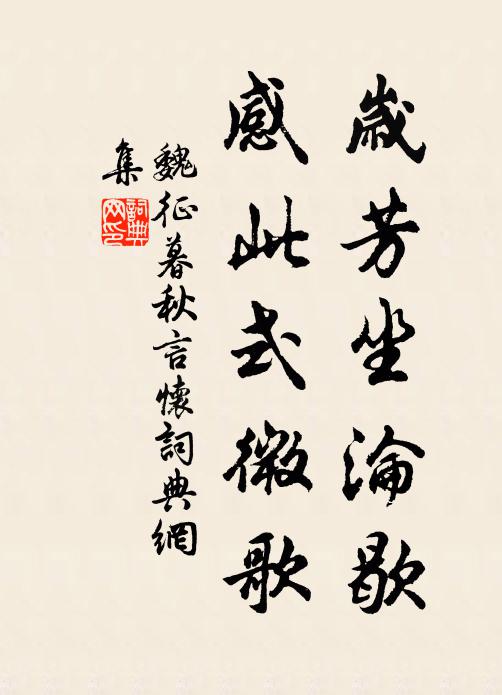 歲芳坐淪歇
感此式微歌
魏征暮秋言懷詞典網
集
詞典網印